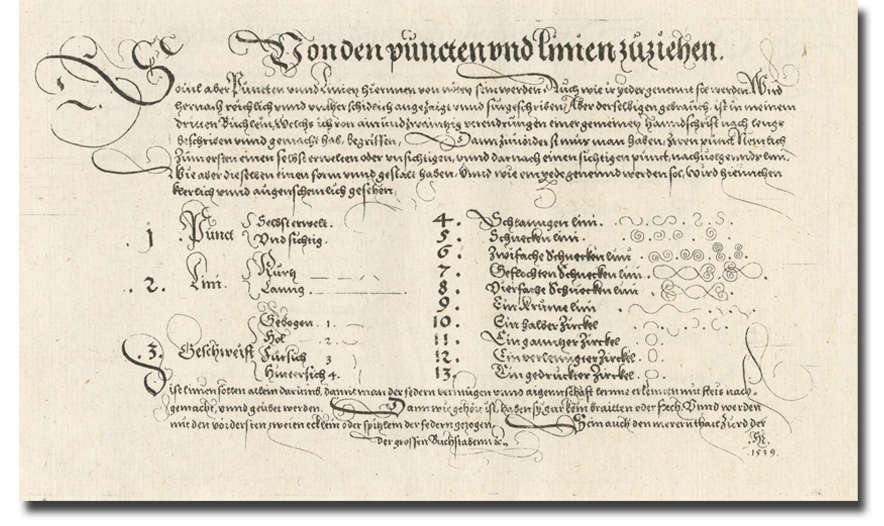 Von den puncten vnd linien zuziehen.
Souil aber Puncten vnnd Linien hierinnen von nöten sein werden, Auch wie ir yeder genennt sol werden, Wird
hernach reichlich vnnd vnderschidlich angezaigt vnnd fürgeschriben, Aber derselbigen gebrauch, ist in meinem
dritten Büchlein, Welchs ich von ainundzwaintzig verendrungen einer gemeinen Hanndschrifft nach lengs
beschriben vnnd gemacht hab, begriffen, Dann zuuörderst muß man haben, zwen punct, Nemlich
Zum ersten einen selbst erwelten oder vnsichtigen, vnnd darnach einen sichtigen punct, nachuolgenndt lini,
Wie aber dieselben einen form vnnd gestalt haben, Vnnd wie ein yede genennd werden sol, wird hieunden
klerlich vnnd augenscheinlich gesehen,
1 Punct Selbst erwelt.
Vnd sichtig.
2. Lini. Kurtz
Lanng
3. Geschweifft Gebogen 1.
Hol 2.
Fürsich 3
Hintersich 4.
4. Schlanngen lini.
5. Schnecken lini.
6. Zwifache Schnecken lini
7. Geflochten Schnecken lini.
8. Vierfache Schnecken lini
9. Ein Krume lini
10. Ein halber Zirckel
11. Ein ganntzer Zirckel
12. Ein verlenngter Zirckel
13. Ein gedruckter Zirckel
Dise linien sollen allein darumb, damit man der federn vermügen vnnd aigennschafft lerrne erkennen mit fleis nach-
gemacht, vnnd geübet werden. Dann wie gehört ist, haben sy gar kein braitten oder flech, Vnnd werden
mit den vördersten zweien ecklein oder spitzlein der federn gezogen, Sein auch den merern thail Zierd der
der grossen Buchstaben etc.
1519.